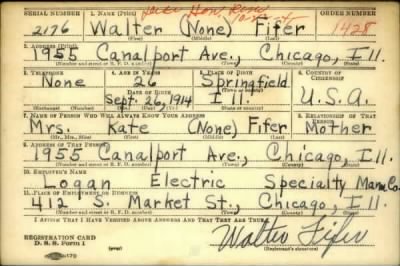 SERIAL NUMBER 1. NAME (Print) ORDER NUMBER
2176 Walter (None) Fifer 1428
(First) (Middle) (Last)
2. ADDRESS (Print)
1955 Canalport Ave., Chicago, Ill.
(Number and street or R. F. D. number) (Town) (County) (State)
3. TELEPHONE 4. AGE IN YEARS 5. PLACE OF BIRTH 6. COUNTRY OF CITIZENSHIP
None 26 Springfield
DATE OF BIRTH (Town or county)
Sept. 26, 1914 Ill. U.S.A.
(Exchange) (Number) (Mo.) (Day) (Yr.) (State or country)
7. NAME OF PERSON WHO WILL ALWAYS KNOW YOUR ADDRESS 8. RELATIONSHIP OF THAT PERSON
Mrs. Kate (None) Fifer Mother
(Mr., Mrs., Miss) (First) (Middle) (Last)
9. ADDRESS OF THAT PERSON
1955 Canalport Ave., Chicago, Ill.
(Number and street or R. F. D. number) (Town) (County) (State)
10. EMPLOYER'S NAME
Logan Electric Specialty Co.
11. PLACE OF EMPLOYMENT OR BUSINESS
412 S. Market St., Chicago, Ill.
(Number and street or R. F. D. number) (Town) (County) (State)
I AFFIRM THAT I HAVE VERIFIED ABOVE ANSWERS AND THAT THEY ARE TRUE.
REGISTRATION CARD
D. S. S. Form 1 Walter Fifer
(Registrant's signature)